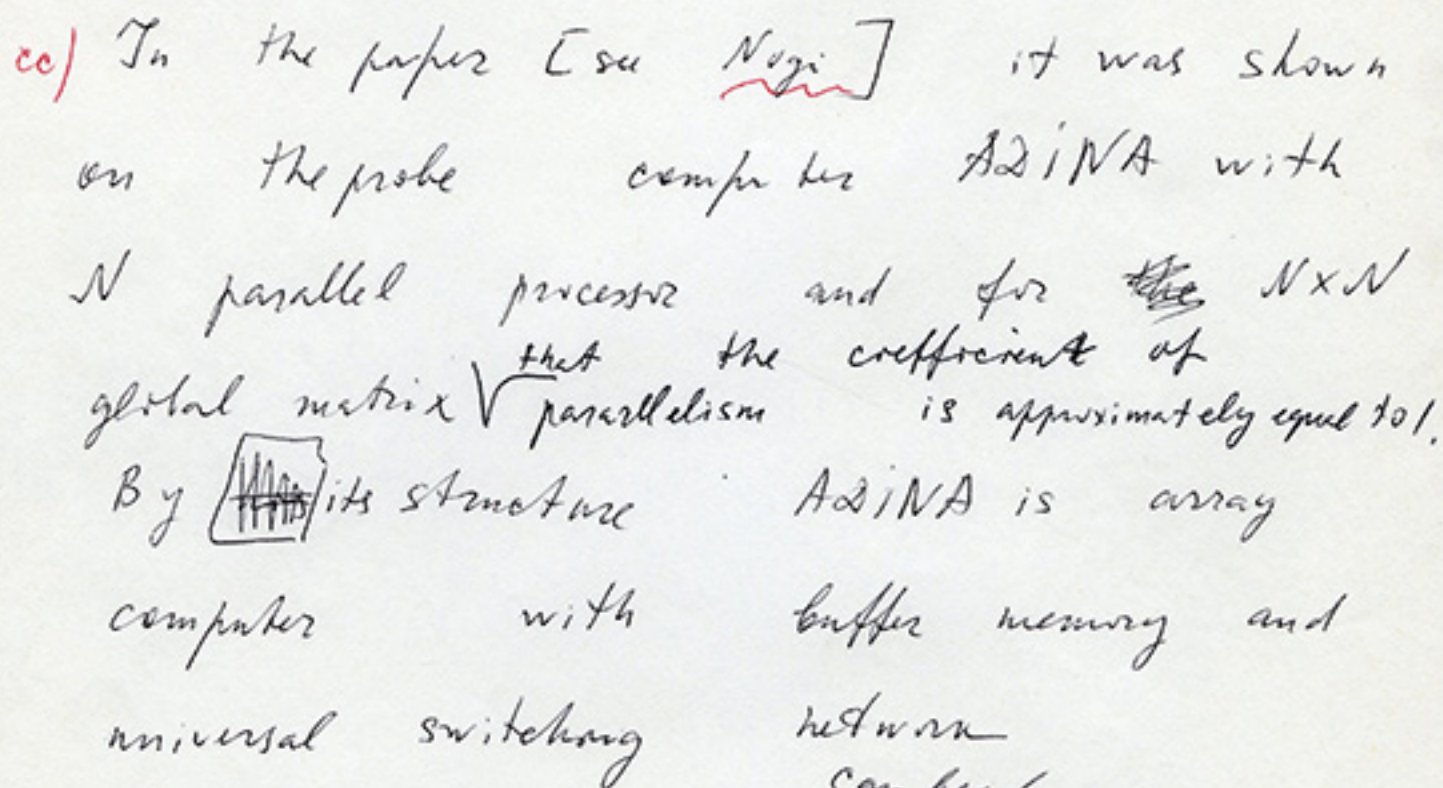 cc) In the paper [see Nogi] it was shown
on the probe computer ADiNA with
N parallel processor and for N×N
that the coefficient of
global matrix √ parallelism is approximately equal to 1.
By its structure ADiNA is array
computer with buffer memory and
universal switching network